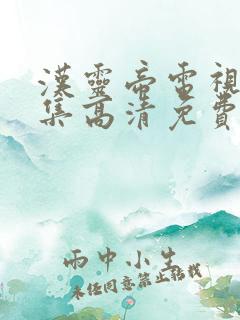 漢靈帝電視
集高清免費
雨中小生
未經同意禁止轉載